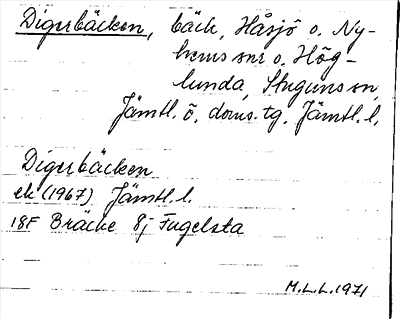 Digerbäcken, bäck, Håsjö o. Ny-
hems snr o. Hög-
lunda, Stuguns sn,
Jämtl. ö. doms. tg. Jämtl. l.
Digerbäcken
ek (1967) Jämtl. l.
18F Bräcke 8j Fugelsta
M.L.L. 1971